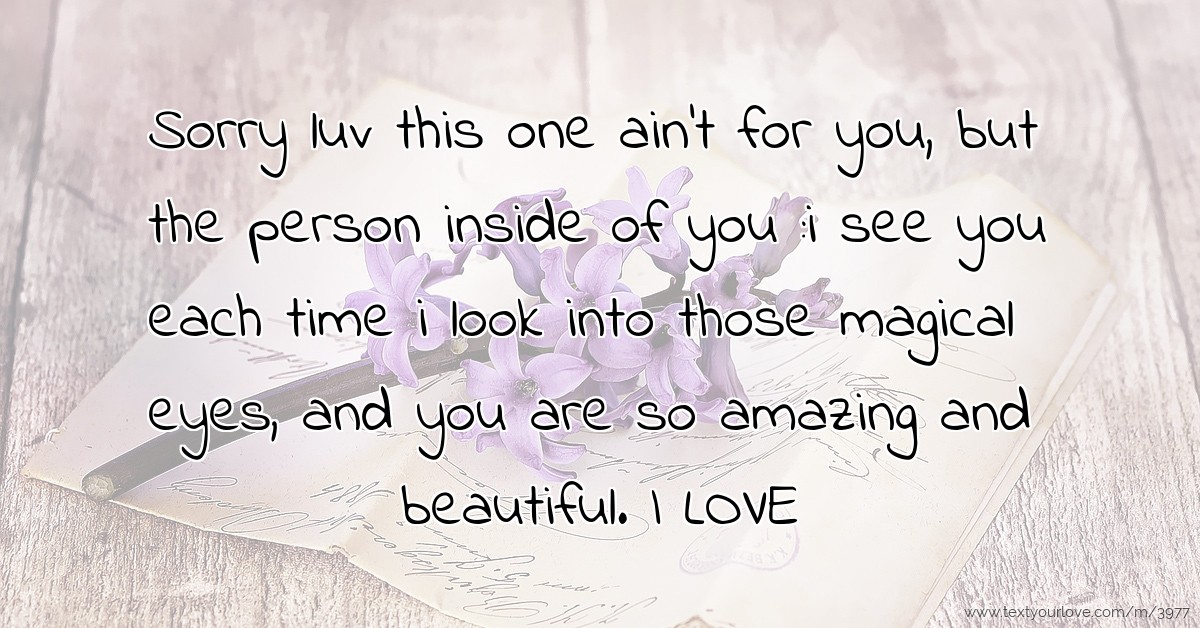 Sorry luv this one ain't for you, but
the person inside of you i see you
each time i look into those magical
eyes, and you are so amazing and
beautiful. I LOVE
www.textyourlove.com/m/3977